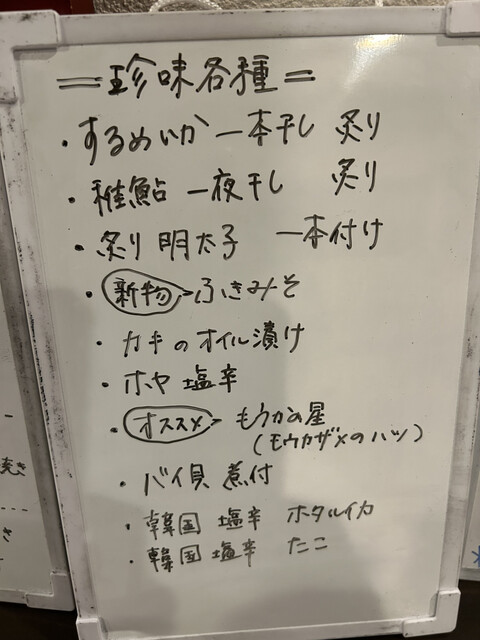 =珍味各種=
・するめいか一本干し 炙り
・稚鮎 一夜干し 炙り
・炙り 明太子 一本付け
・新物 ふきみそ
・カキのオイル漬け
・ホヤ 塩辛
・オススメ もうかの星
(モウカザメのハツ)
・バイ貝 煮付
・韓国 塩辛 ホタルイカ
・韓国 塩辛 たこ
焼き
き